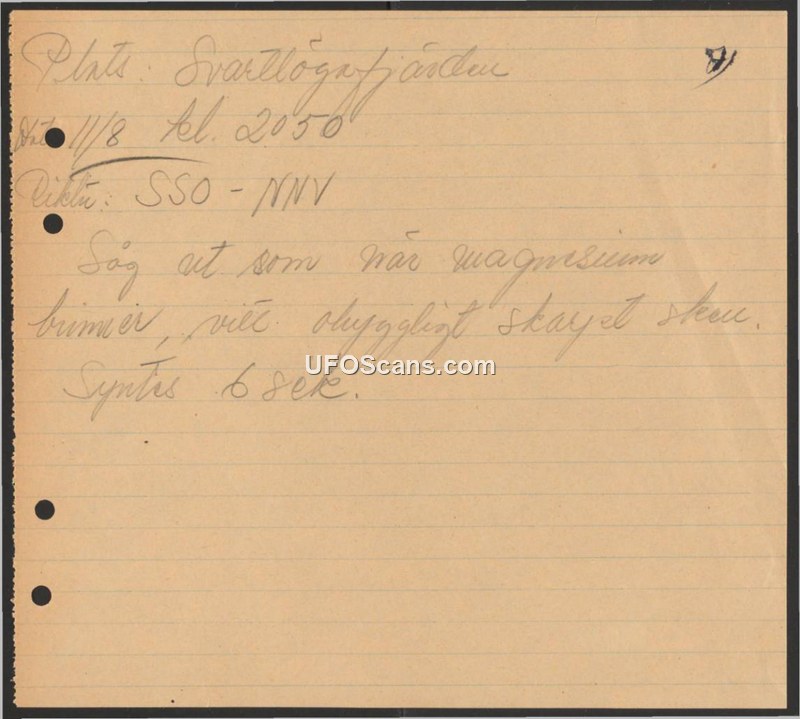 Plats: Svartlögafjärden
Dat. 11/8 kl. 2050
Riktn: SSO - NNV
Såg ut som när magnesium
brinner, vitt ohyggligt skarpt sken.
UFOScans.com
Syntes 6 sek.